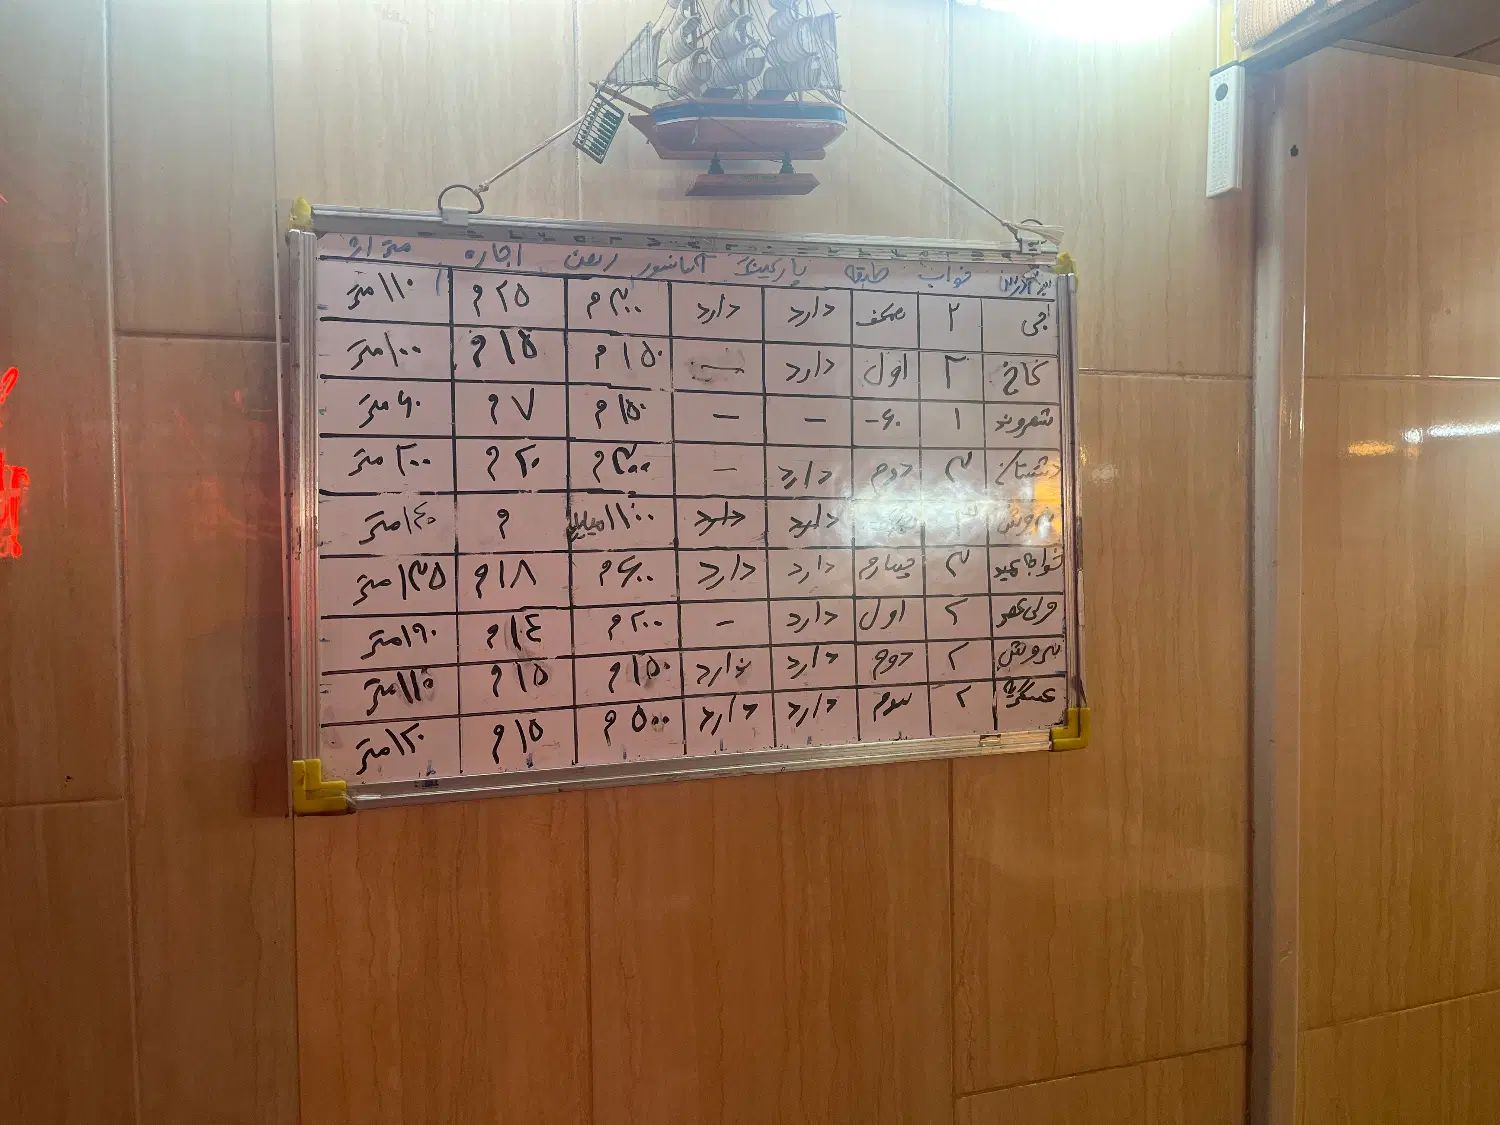 خواب طبقه پارکینگ آسانسور رهن اجاره متراژ
جی ۲ همکف دارد دارد ۳۰۰م ۲۵م ۱۱۰متر
کاخ ۲ اول دارد ۱۵۰م ۱۵م ۱۰۰متر
شهروند ۱ - - ۱۵۰م ۷م ۶۰متر
دشتستان ۳ دوم دارد - ۳۰۰م ۲۰م ۲۰۰متر
سروش ۳ دارد دارد ۱۱۰۰میلیون م ۱۴۰متر
خواجه عمید ۳ چهارم دارد دارد ۶۰۰م ۱۸م ۱۳۵متر
ولی عصر ۲ اول دارد - ۲۰۰م ۱۴م ۱۹۰متر
سروش ۲ دوم دارد ندارد ۱۵۰م ۱۵م ۱۱۵متر
عسگریه ۲ سوم دارد دارد ۵۰۰م ۱۵م ۱۲۰متر